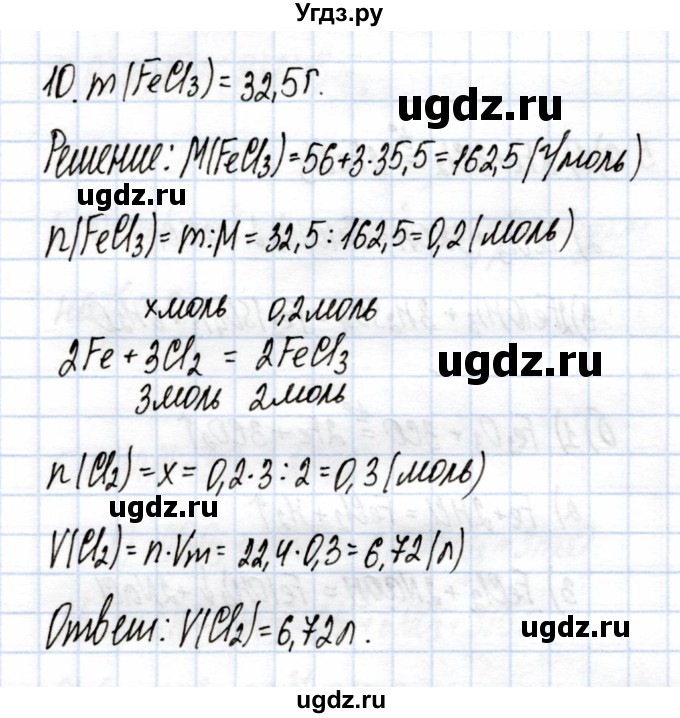 Угдз.ру
10. m(FeCl3) = 32,5г.
ugdz.ru
Решение: M(FeCl3) = 56 + 3·35,5 = 162,5 (г/моль)
ugdz.ru
n(FeCl3) = m:M = 32,5 : 162,5 = 0,2 (моль)
x моль 0,2 моль
2Fe + 3Cl2 = 2FeCl3
ugdz.ru
3 моль 2 моль
n(Cl2) = x = 0,2·3 : 2 = 0,3 (моль)
ugdz.ru
V(Cl2) = n·Vm = 22,4·0,3 = 6,72 (л)
Ответ: V(Cl2) = 6,72 л.
ugdz.ru
ugdz.ru